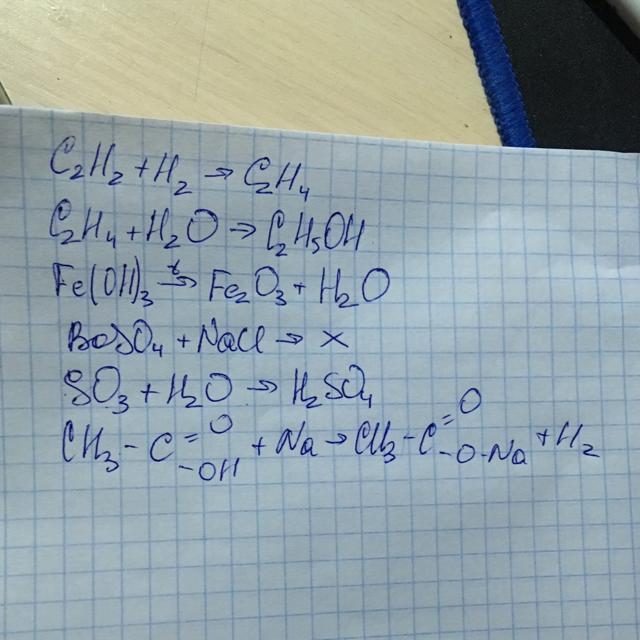 C₂H₂ + H₂ → C₂H₄
C₂H₄ + H₂O → C₂H₅OH
Fe(OH)₃ →ᵗ Fe₂O₃ + H₂O
BaSO₄ + NaCl → ×
SO₃ + H₂O → H₂SO₄
CH₃ - C = O - OH + Na → CH₃ - C = O - O - Na + H₂